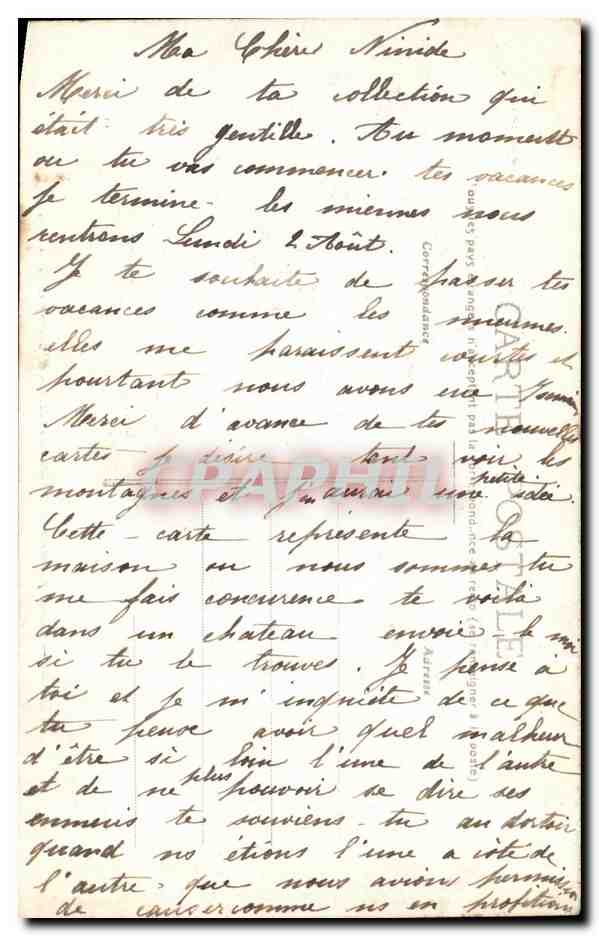 Ma Chère Ninide
Merci de ta collection qui
était très gentille. Au moment
ou tu vas commencer tes vacances
Je termine les miennes nous
rentrons Lundi 2 Août.
Je te souhaite de passer tes
vacances comme les miennes.
elles me paraissent courtes et
pourtant nous avons eue
Merci d'avance de tes nouvelles
cartes je désire tant voir les
montagnes et j'en aurai une petite idée.
Cette carte représente la
maison ou nous sommes tu
me fais concurence te voilà
dans un chateau envoie le moi
si tu le trouves. Je pense à
toi et je m'inquiète de ce que
tu pense avoir quel malheur
d'être si loin l'une de l'autre
et de ne plus pouvoir se dire ses
ennuis te souviens-tu au dortoir
quand ns étions l'une a côté de
l'autre que nous avion permission
de causer comme ns en profitions
CARTE POSTALE
Tous les pays étrangers n'acceptent pas la correspondance au recto (se renseigner à la poste)
Correspondance
Adresse
CPAPHIL